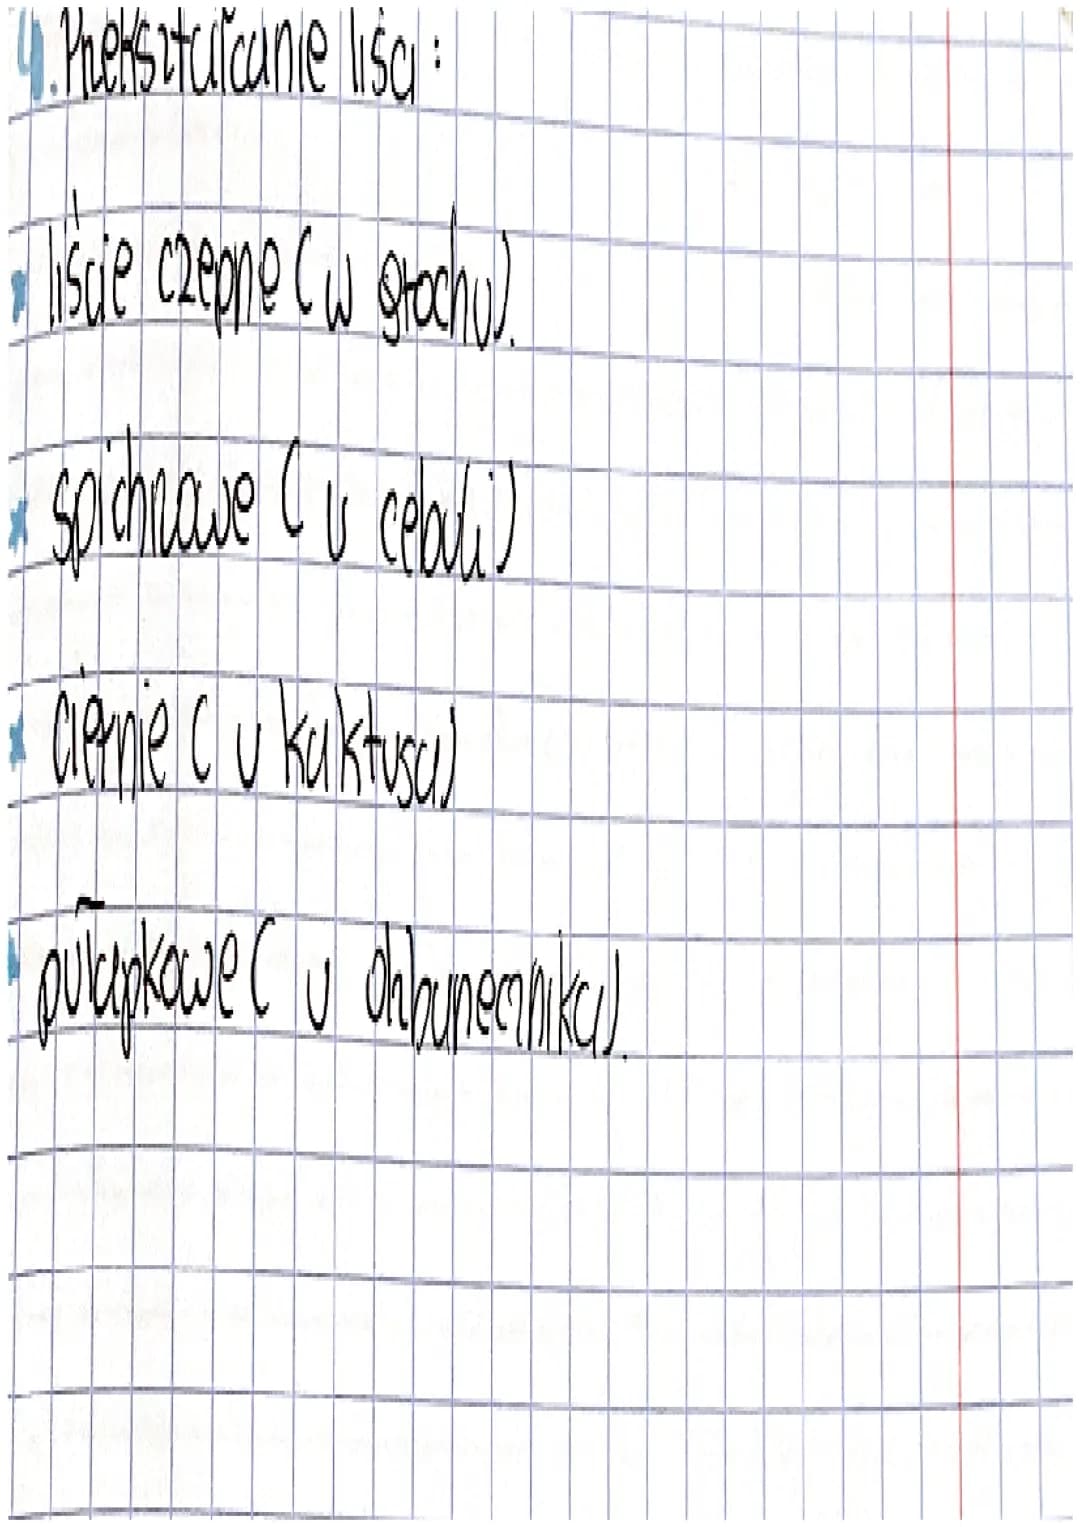 4. Przekształcanie liści:
• liście czepne (w grochu).
x spichrzowe (u cebuli)
x ciernie (u kaktusa)
• pułapkowe (u dzbanecznika).